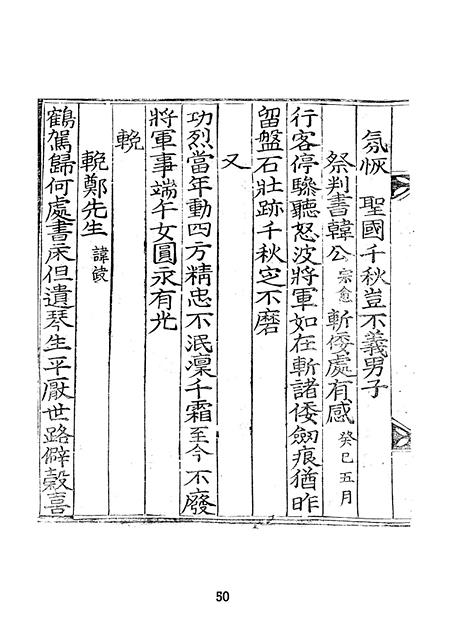 氛恢 聖國千秋豈不義男子
祭判書韓公 宗愈 斬倭處有感 癸巳五月
行客停驂聽怒波將軍如在斬諸倭劒痕猶昨
留盤石壯跡千秋定不磨
又
功烈當年動四方精忠不泯凜千霜至今不廢
將軍事端午女圓永有光
輓
輓鄭先生 諱
鶴駕歸何處書床但遺琴生平厭世路僻穀喜
50